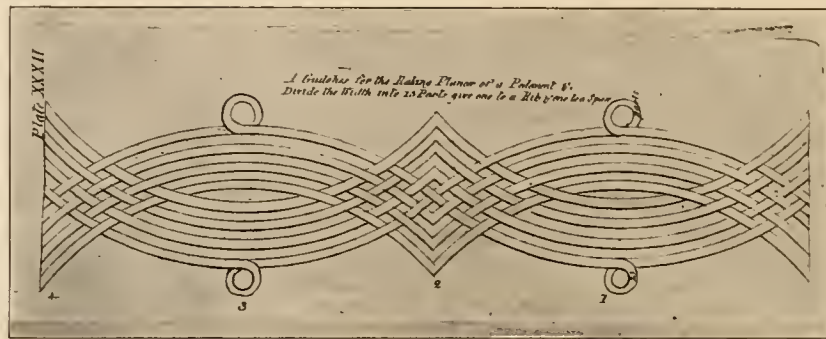 Plate XXXII
A Guilohse for the Raling Planar of a Pedment &c.
Divide the Width into 13 Parts give one to a Rib & one to a Space
Parts
4
3
2
1